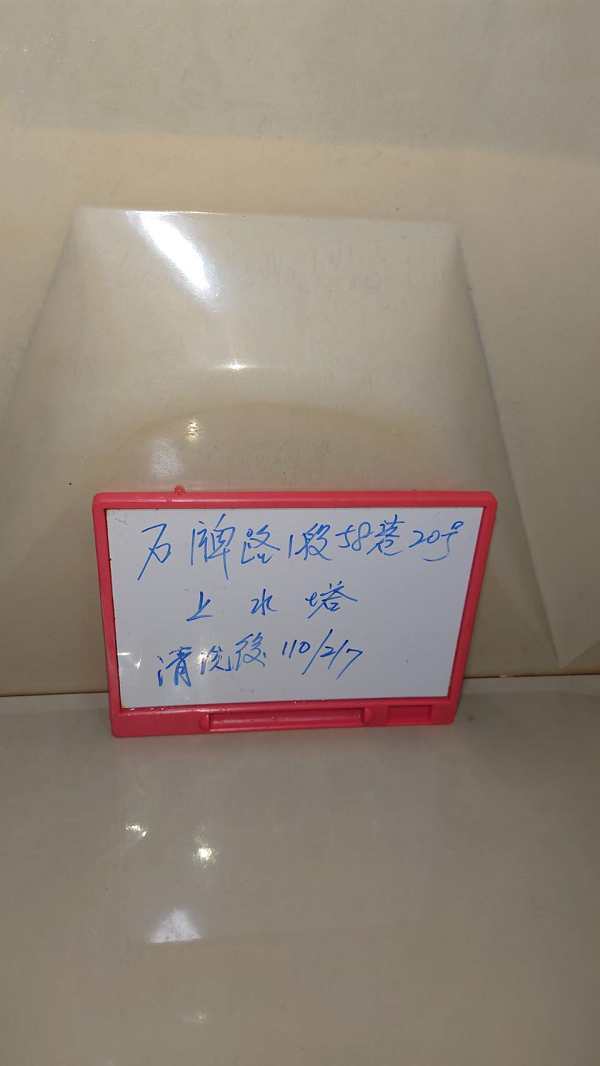 石牌路1段58巷20号
上水塔
清洗後 110/2/7